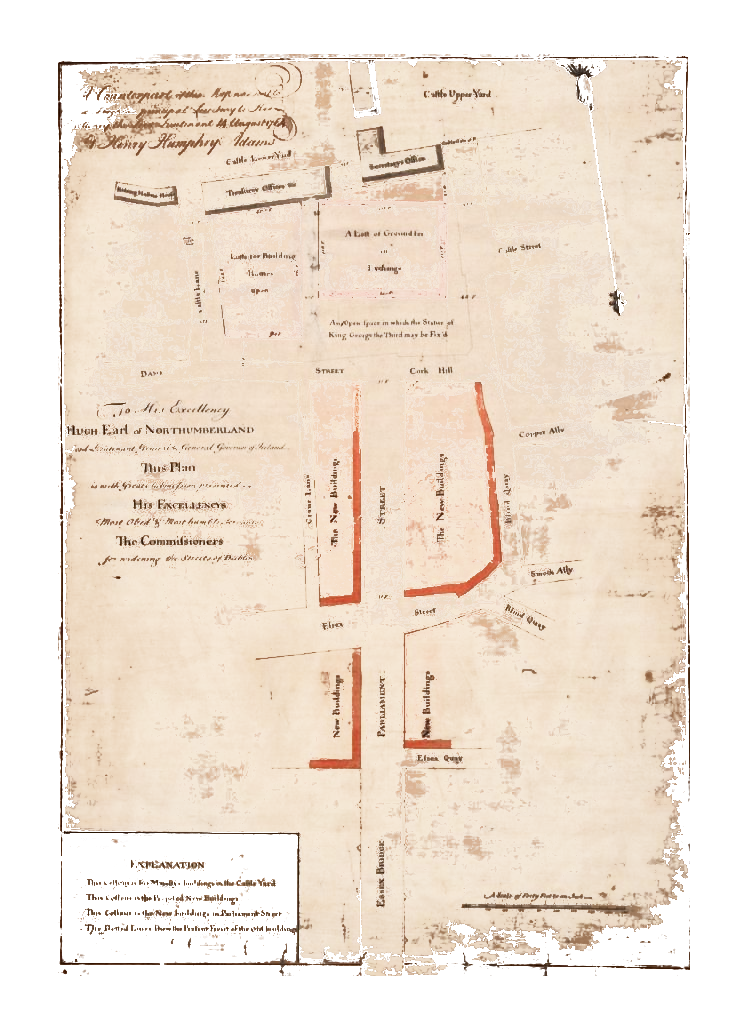 Counterpart of this Map
principal Secretary to
Lieutenant 14 August 1764
Henry Humphry Adams
Castle Upper Yard
Castle Lower Yard
Treasury Offices &c
Secretarys Office
A Lott of Ground for
an
Exchange
Lotts for Building
Houses
upon
Castle Lane
Castle Street
An Open Space in which the Statue of
King George the Third may be Fix'd
DAME
STREET
Cork Hill
To His Excellency
HUGH Earl of NORTHUMBERLAND
Lord Lieutenant General & General Governor of Ireland
This Plan
is with Great Submission presented
HIS EXCELLENCYS
Most Obed.t & Most humble Servants
The Commissioners
for widening the Streets of Dublin
Copper Ally
Crane Lane
The New Buildings
STREET
The New Buildings
Blind Quay
Smock Ally
Blind Quay
Essex
Street
New Buildings
PARLIAMENT
New Buildings
Essex Quay
ESSEX BRIDGE
EXPLANATION
This Colour is for buildings in the Castle Yard
This Colour is the New Buildings
This Colour is the New Buildings in Parliament Street
The Dotted Lines Shew the Present Front of the Old buildings
A Scale of Forty Feet to an Inch